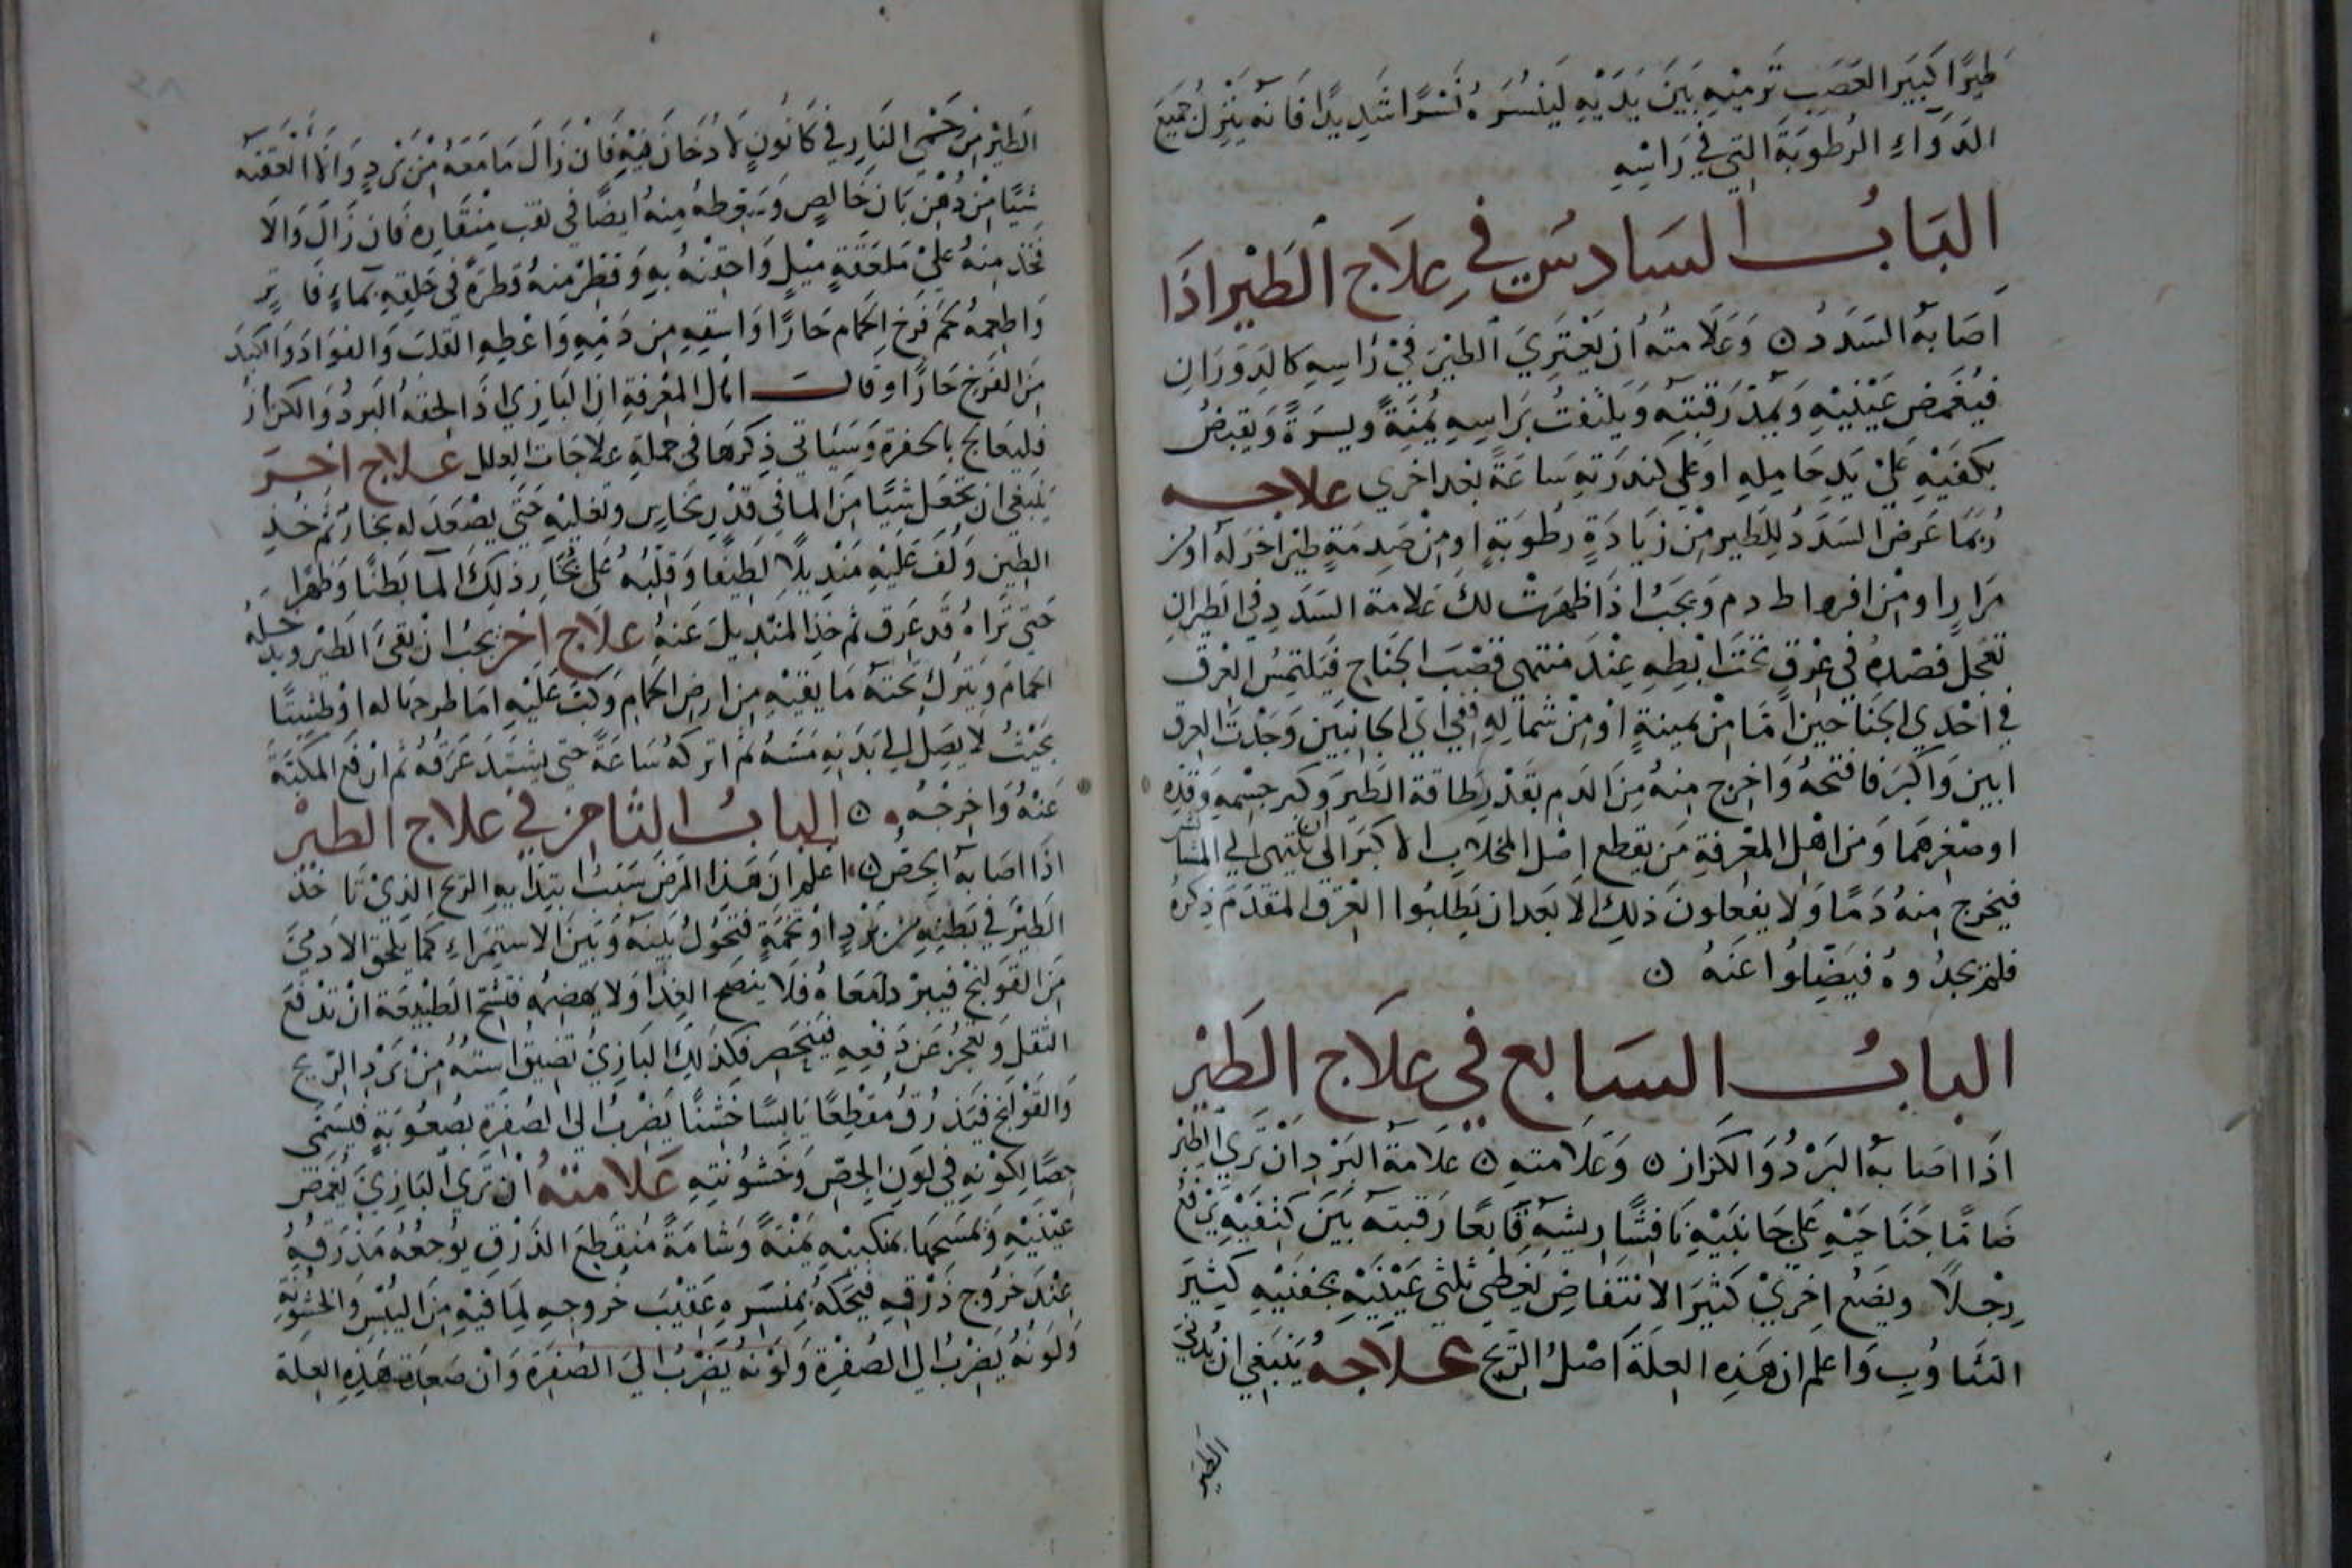 طيرًا كبير العصب ترميه بين يديه لينسره نسرًا شديدًا فانه ينزل جميع
الدواء الرطوبة التي في راسه
الباب السادس في علاج الطير اذا
اصابه السدد ن وعلامته أن يعتري الطير في راسه كالدوران
فيغمض عينيه ويمد رقبته ويلتفت براسه يمنة ويسرة ويقبض
بكفيه علي يد حامله او علي كندرته ساعة بعد اخري علاجه
ربما عرض السدد للطير من زيادة رطوبة او من صدمة طير اخر له او من
مرار او من افراط دم ويجب اذا ظهرت لك علامة السدد في الطير ان
تعجل فصده في عرق تحت ابطه عند منتهي قصب الجناح فيلتمس العرق
في احدي الجناحين اما من يمينة او من شماله ففي اي الجانبين وجدت العرق
ابين واكبر فافتحه واخرج منه من الدم بقدر طاقة الطير وكبر جسمه وقده
او صغرهما ومن اهل المعرفة من يقطع اصل المخلاب الاكبر الي ان ينتهي الي المشاش
فيخرج منه دمًا ولا يفعلون ذلك الا بعد ان يطلبوا العرق المتقدم ذكره
فلم يجدوه فيضلوا عنه ن
الباب السابع في علاج الطير
اذا اصابه البرد والكزاز ن وعلامته ن علامة البرد ان تري الطير
ضامًا جناحيه علي جانبيه نافشًا ريشه قابعًا رقبته بين كتفيه يرفع
رجلاً ويضع اخري كثير الانتفاض يغطي ثلثي عينيه بجفنيه كثير
التثاوب واعلم ان هذه العلة اصل الريح علاجه ينبغي ان يدني
الطير
الطير من حمي النار في كانون لا دخان فيه فان زال ما معه من برد والا العقه
شيًا من دهن بان خالص ويسقطه منه ايضًا في ثقب منقاره فان زال والا
فخذ منه علي ملعقة ميل واحقنه به وقطر منه قطرة في حلقه بماء فاتر
واطعمه لحم فرخ الحمام حارًا واسقه من دمه واعطه القلب والفواد والكبد
من الفرخ حارًا وقال اهل المعرفة ان البازي اذا لحقه البرد والكزاز
فليعالج بالحفرة وسياتي ذكرها في جملة علاجات العلل علاج اخر
ينبغي ان تجعل شيًا من الما في قدر نحاس وتغليه حتي يصعد له بخار ثم خذ
الطير ولف عليه منديلاً لطيفًا وقلبه علي بخار ذلك الما بطنًا وظهرا
حتي تراه قد عرق ثم خذ المنديل عنه علاج اخر يجب ان تقي الطير ويدخله
الحمام ويترك تحته ما يقيه من ارض الحمام وكب عليه اما طرجهاله او طشتًا
بحيث لا يصل الي بدنه مسه ثم اتركه ساعة حتي يشتد عرقه ثم ارفع المكبة
عنه واخرجه ن الباب الثامن في علاج الطير
اذا اصابه الجص ن اعلم ان هذا المرض سبب ابتدايه الريح الذي تاخذ
الطير في بطنه من برد او تخمة فتحول بينه وبين الاستمراء كما يلحق الادمي
من القولنج فيبرد امعاه فلا ينضج الغذا ولا يهضمه فتشح الطبيعة ان تدفع
الثقل وتعجز عن دفعه فينحصر فكذلك البازي تضيق استه من برد الريح
والقولنج فيذرق مقطعًا يابسًا خشنًا يضرب الي الصفرة بصعوبة فيسمي
جصًا لكونه في لون الجص وخشونته علامته ان تري البازي يغمض
عينيه ويمسحها بمنكبيه يمنة وشامة منقطع الذرق يوجعه مذرقه
عند خروج ذرقه فيحكه بمنسره عقيب خروجه لما فيه من اليبس والخشونة
ولونه يضرب الي الصفرة ولونه يضرب الي الصفرة وان هذه العلة